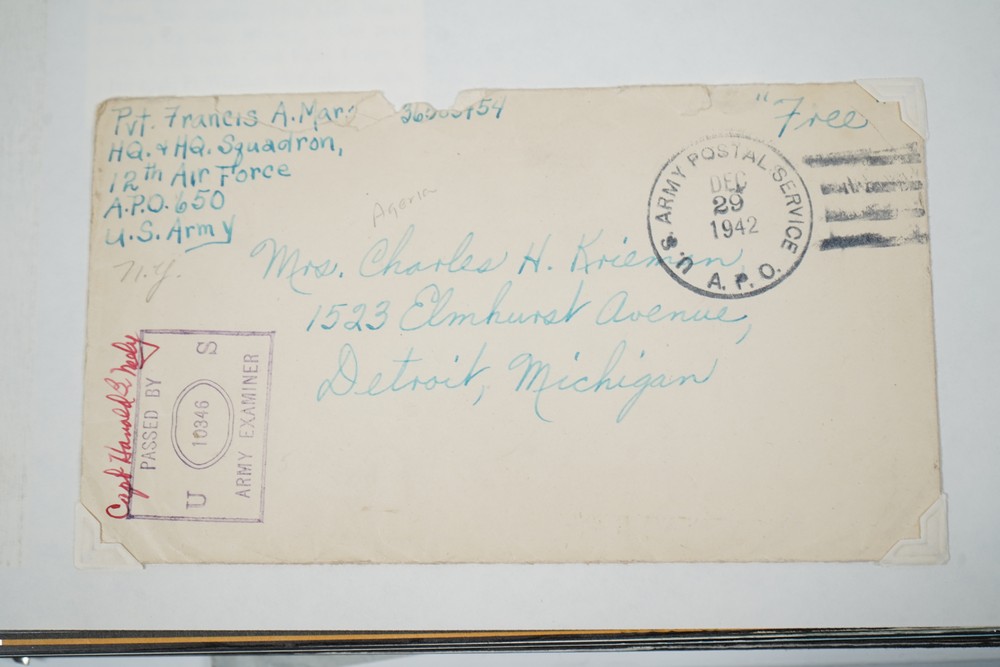 Pvt. Francis A. Mar
HQ. & HQ. Squadron,
12th Air Force
A.P.O. 650
U.S. Army
N.Y.
"Free
U.S. ARMY POSTAL SERVICE
DEC
29
1942
A.P.O.
Mrs. Charles H. Krieman
1523 Elmhurst Avenue,
Detroit, Michigan
Capt Harold E Nealy
PASSED BY
U S
10346
ARMY EXAMINER